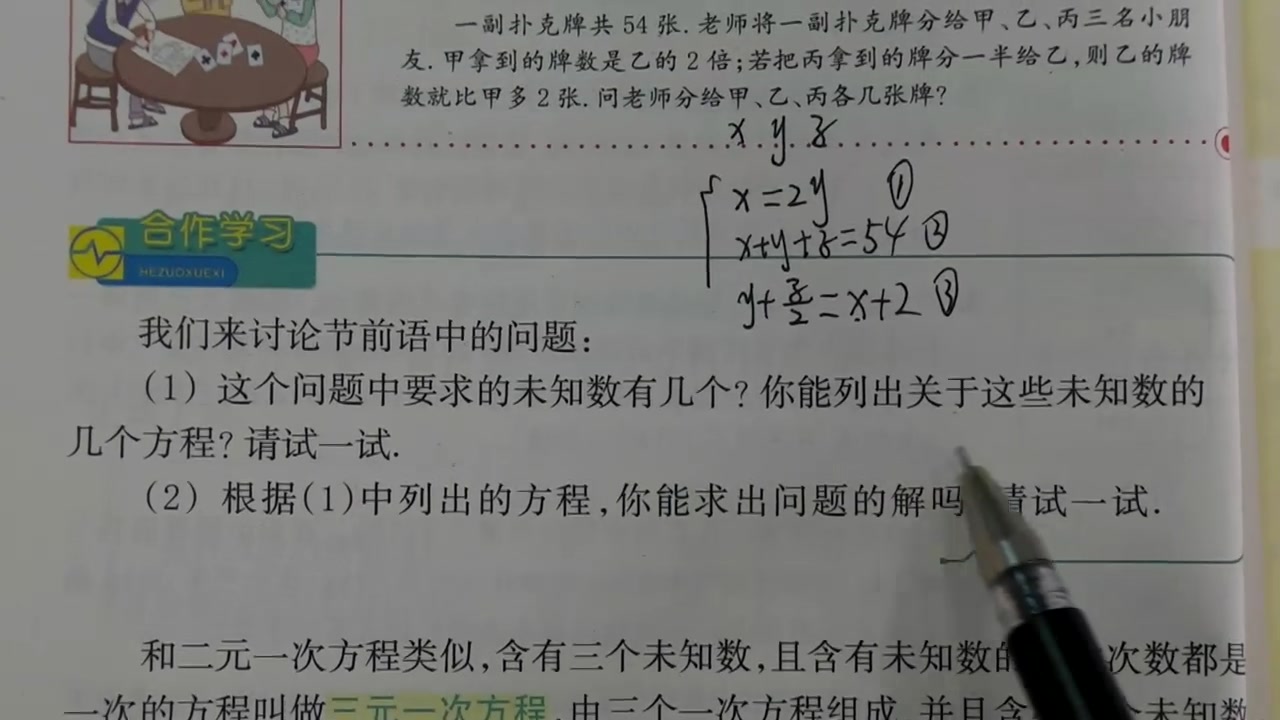 一副扑克牌共 54 张. 老师将一副扑克牌分给甲、乙、丙三名小朋
友. 甲拿到的牌数是乙的 2 倍;若把丙拿到的牌分一半给乙,则乙的牌
数就比甲多 2 张. 问老师分给甲、乙、丙各几张牌?
x y z
x=2y ①
合作学习
x+y+z=54 ②
HEZUOXUEXI
y+z/2=x+2 ③
我们来讨论节前语中的问题:
(1) 这个问题中要求的未知数有几个? 你能列出关于这些未知数的
几个方程? 请试一试.
(2) 根据(1)中列出的方程,你能求出问题的解吗 请试一试.
和二元一次方程类似,含有三个未知数,且含有未知数的 次数都是
一次的方程叫做三元一次方程.由三个一次方程组成,并且含 个未知数